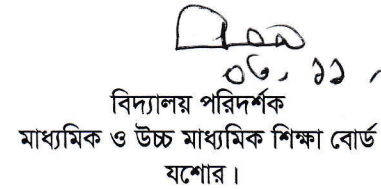 ০৬, ১১
বিদ্যালয় পরিদর্শক
মাধ্যমিক ও উচ্চ মাধ্যমিক শিক্ষা বোর্ড
যশোর।